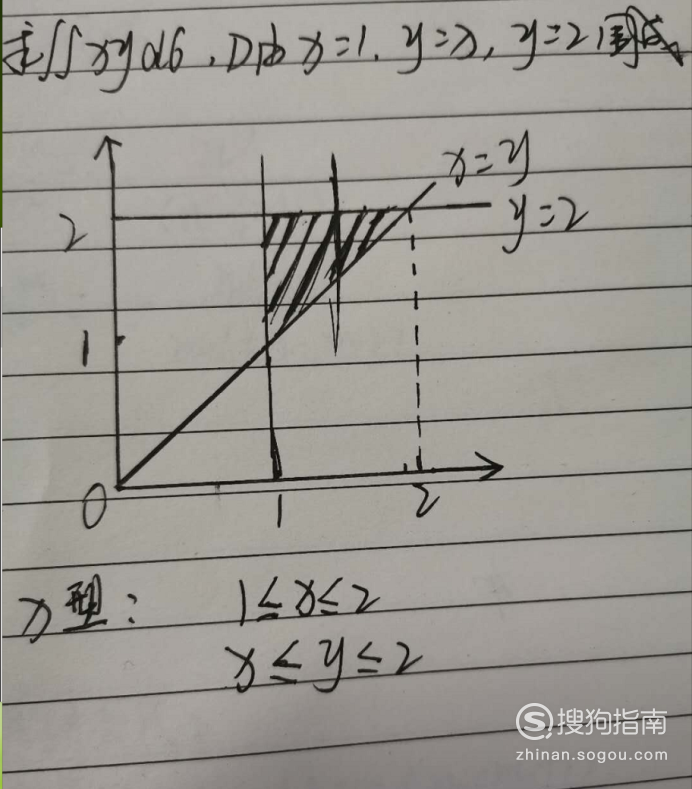 求∬xydσ，D由x=1，y=x，y=2围成
x=y
y=2
2
1
0
1
2
x型：
1≤x≤2
x≤y≤2
搜狗指南
zhinan.sogou.com